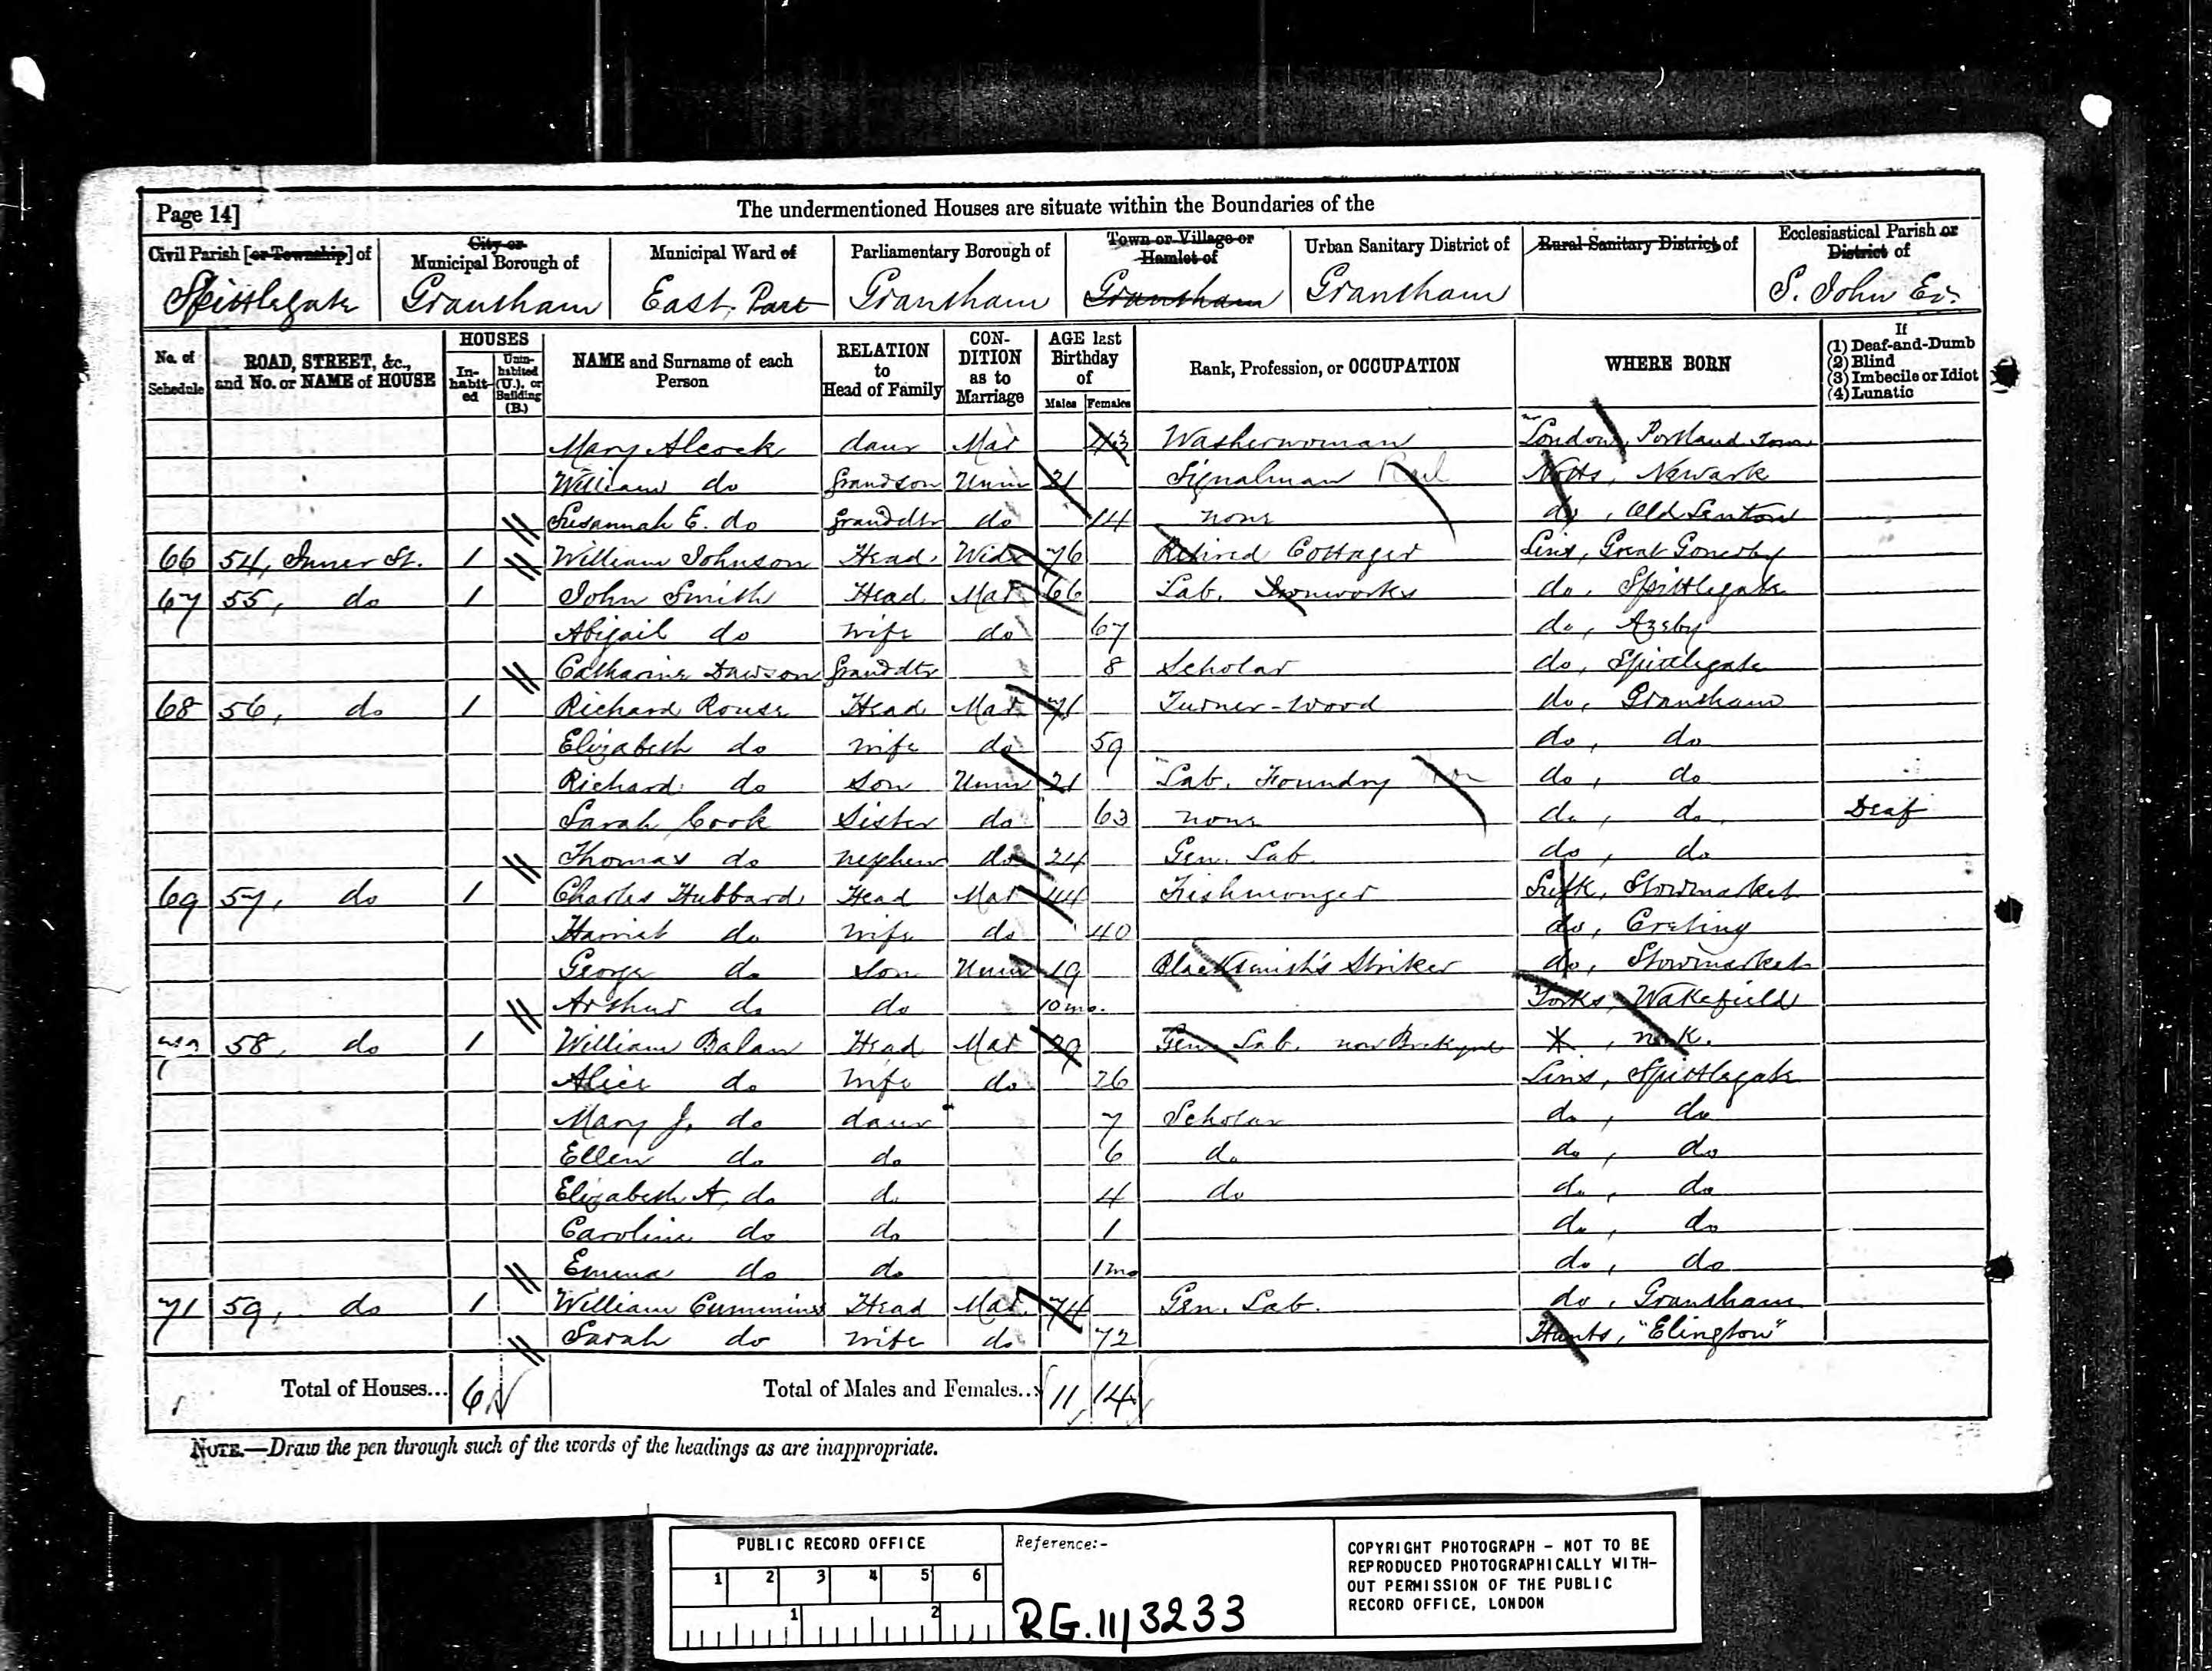 Page 14]
The undermentioned Houses are situate within the Boundaries of the
Civil Parish [or Township] of
City or Municipal Borough of
Municipal Ward of
Parliamentary Borough of
Town or Village or Hamlet of
Urban Sanitary District of
Rural Sanitary District of
Ecclesiastical Parish or District of
Spittlegate Grantham East Part Grantham Grantham Grantham S. John Ev.
No. of Schedule
ROAD, STREET, &c., and No. or NAME of HOUSE
HOUSES
In-habit-ed
Unin-habited (U.), or Building (B.)
NAME and Surname of each Person
RELATION to Head of Family
CON-DITION as to Marriage
AGE last Birthday of
Males Females
Rank, Profession, or OCCUPATION
WHERE BORN
If
(1) Deaf-and-Dumb
(2) Blind
(3) Imbecile or Idiot
(4) Lunatic
Mary Alcock daur Mar 43 Washerwoman London, Portland Town
William do Grandson Unm 21 Signalman Rail Notts, Newark
Susannah E. do Granddtr do 14 none do, Old Lenton
66 54, Inner St. 1 William Johnson Head Widr 76 Retired Cottager Linc, Great Gonerby
67 55, do 1 John Smith Head Mar 66 Lab. Ironworks do, Spittlegate
Abigail do Wife do 67 do, Azeby
Catharine Dawson Granddtr 8 Scholar do, Spittlegate
68 56, do 1 Richard Rouse Head Mar 71 Turner-Wood do, Grantham
Elizabeth do Wife do 59 do, do
Richard do Son Unm 21 Lab. Foundry do, do
Sarah Cook Sister do 63 none do, do Deaf
Thomas do nephew do 24 Gen. Lab. do, do
69 57, do 1 Charles Hubbard Head Mar 44 Fishmonger Suffk, Stowmarket
Harriet do Wife do 40 do, Creting
George do Son Unm 19 Blacksmith's Striker do, Stowmarket
Arthur do do 10 mo. Yorks, Wakefield
58, do 1 William Balan Head Mar 29 Gen. Lab. now Brickyard *, n.k.
Alice do Wife do 26 Linc, Spittlegate
Mary J. do daur 7 Scholar do, do
Ellen do do 6 do do, do
Elizabeth A. do do 4 do do, do
Caroline do do 1 do, do
Emma do do 1mo do, do
71 59, do 1 William Cummins Head Mar 74 Gen. Lab. do, Grantham
Sarah do Wife do 72 Hunts, "Elington"
Total of Houses... 6
Total of Males and Females... 11 14
NOTE.—Draw the pen through such of the words of the headings as are inappropriate.
PUBLIC RECORD OFFICE
1 2 3 4 5 6
1 2
Reference:-
RG.11/3233
COPYRIGHT PHOTOGRAPH - NOT TO BE
REPRODUCED PHOTOGRAPHICALLY WITH-
OUT PERMISSION OF THE PUBLIC
RECORD OFFICE, LONDON